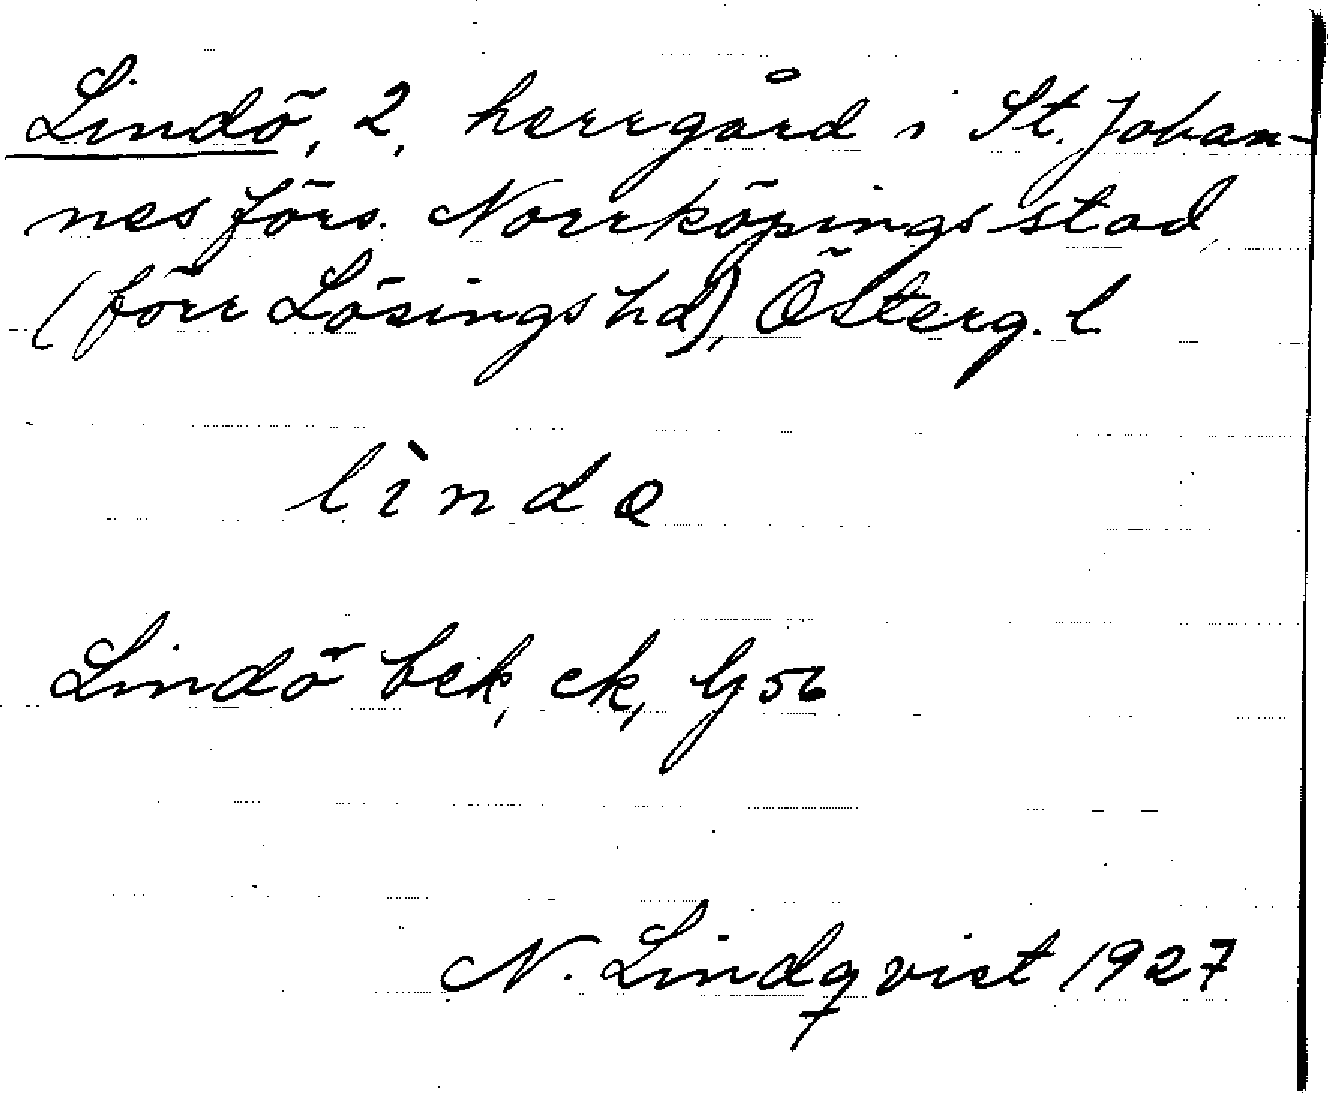 Lindö, 2, herrgård i St. Johan-
nes förs. Norrköpings stad,
(förr Lösings hd), Österg. l
lìndə
Lindö bek, ek, Gj 56
N. Lindqvist 1927